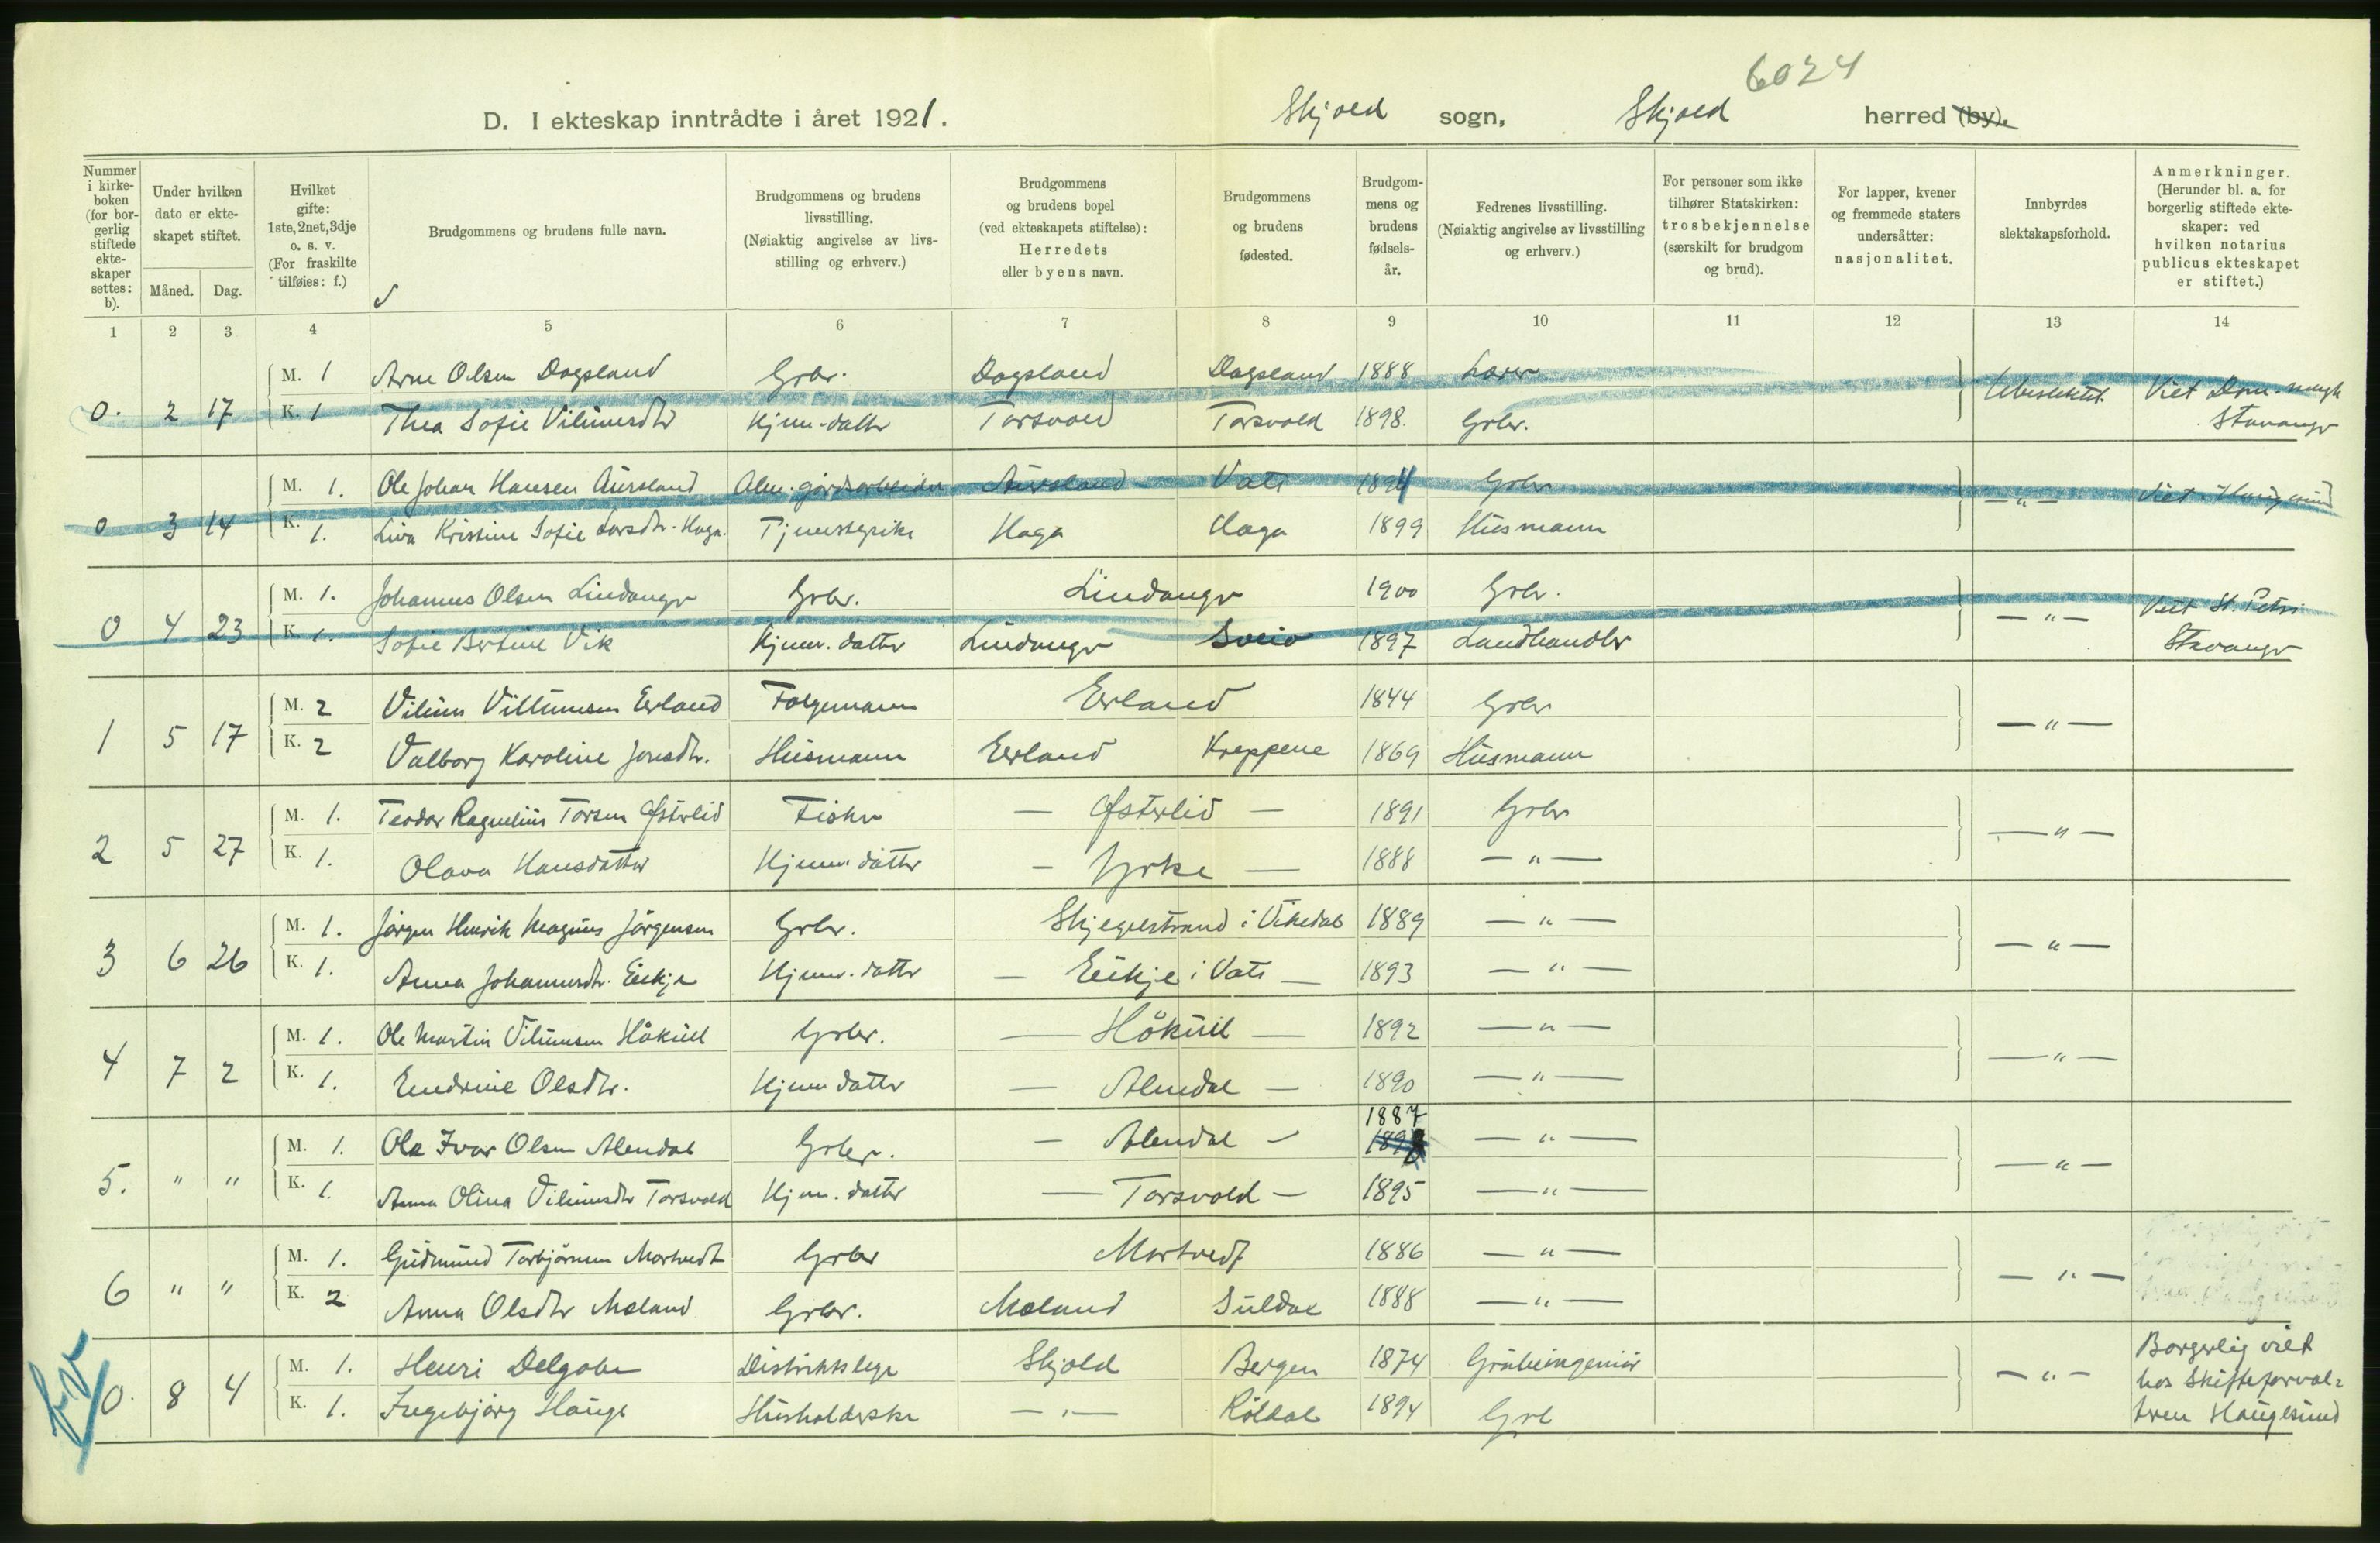 6024
D. I ekteskap inntrådte i året 1921. Skjold sogn, Skjold herred (by).
Nummer i kirke-boken (for bor-gerlig stiftede ekte-skaper settes: b).
Under hvilken dato er ekte-skapet stiftet.
Måned. Dag.
Hvilket gifte: 1ste, 2net, 3dje o. s. v. (For fraskilte tilføies: f.)
Brudgommens og brudens fulle navn.
Brudgommens og brudens livsstilling. (Nøiaktig angivelse av livs-stilling og erhverv.)
Brudgommens og brudens bopel (ved ekteskapets stiftelse): Herredets eller byens navn.
Brudgommens og brudens fødested.
Brudgom-mens og brudens fødsels-år.
Fedrenes livsstilling. (Nøiaktig angivelse av livsstilling og erhverv.)
For personer som ikke tilhører Statskirken: trosbekjennelse (særskilt for brudgom og brud).
For lapper, kvener og fremmede staters undersåtter: nasjonalitet.
Innbyrdes slektskapsforhold.
Anmerkninger. (Herunder bl. a. for borgerlig stiftede ekte-skaper: ved hvilken notarius publicus ekteskapet er stiftet.)
1 2 3 4 5 6 7 8 9 10 11 12 13 14
M. 1 Arne Olsen Dagsland Grbr. Dagsland Dagsland 1888 Lærer Ubeslektet. Viet Dom.
0. 2 17 K. 1 Thea Sofie Vilumsdtr Hjem. datter Torsvold Torsvold 1898. Grbr. Stavanger
M. 1. Ole Johan Hansen Aursland Alm. gårdsarbeider Aursland Vats 1894 Grbr Viet i Haugesund
0 3 14 K. 1. Lina Kristine Sofie Larsdtr. Haga. Tjenestepike Haga Haga 1899 Husmann — " —
M. 1. Johannes Olsen Lindanger Grbr. Lindanger 1900 Grbr. Viet St. Petri
0 4 23 K. 1. Sofie Bertine Vik Hjem. datter Lindanger Sveio 1897 Landhandler — " — Stavanger
M. 2 Vilum Villumsen Erland Folgemann Erland 1844 Grbr
1 5 17 K. 2 Valborg Karoline Jonsdtr. Husmann Erland Kreppene 1869 Husmann — " —
M. 1. Teodor Ragnelius Torsen Østerlid Fisker — Østerlid — 1891 Grbr
2 5 27 K. 1. Olava Hansdatter Hjem. datter — Yrke — 1888 — " — — " —
M. 1. Jørgen Henrik Magnus Jørgensen Grbr. Skjegelstrand i Vikedal 1889 — " —
3 6 26 K. 1. Anna Johannesdtr. Eikje Hjem. datter — Eikje i Vats — 1893 — " — — " —
M. 1. Ole Martin Vilumsen Håkull Grbr. — Håkull — 1892 — " —
4 7 2 K. 1. Endrine Olsdtr. Hjem datter — Alendal — 1890 — " — — " —
1887
M. 1. Ole Ivar Olsen Alendal Grbr. — Alendal — — " —
5. " " K. 1. Anna Olina Vilumsdtr Torsvold Hjem. datter — Torsvold — 1895 — " — — " —
M. 1. Gudmund Torbjørnsen Mortvedt Grbr Mortvedt 1886 — " —
6 " " K. 2 Anna Olsdtr Mæland Grbr. Mæland Suldal 1888 — " — — " —
M. 1. Henri Delgobe Distriktslege Skjold Bergen 1874 Grubeingeniør Borgerlig viet
0. 8 4 K. 1. Ingebjørg Hauge Husholderske — " — Røldal 1894 Grb — " — hos Skifteforval=
teren Haugesund